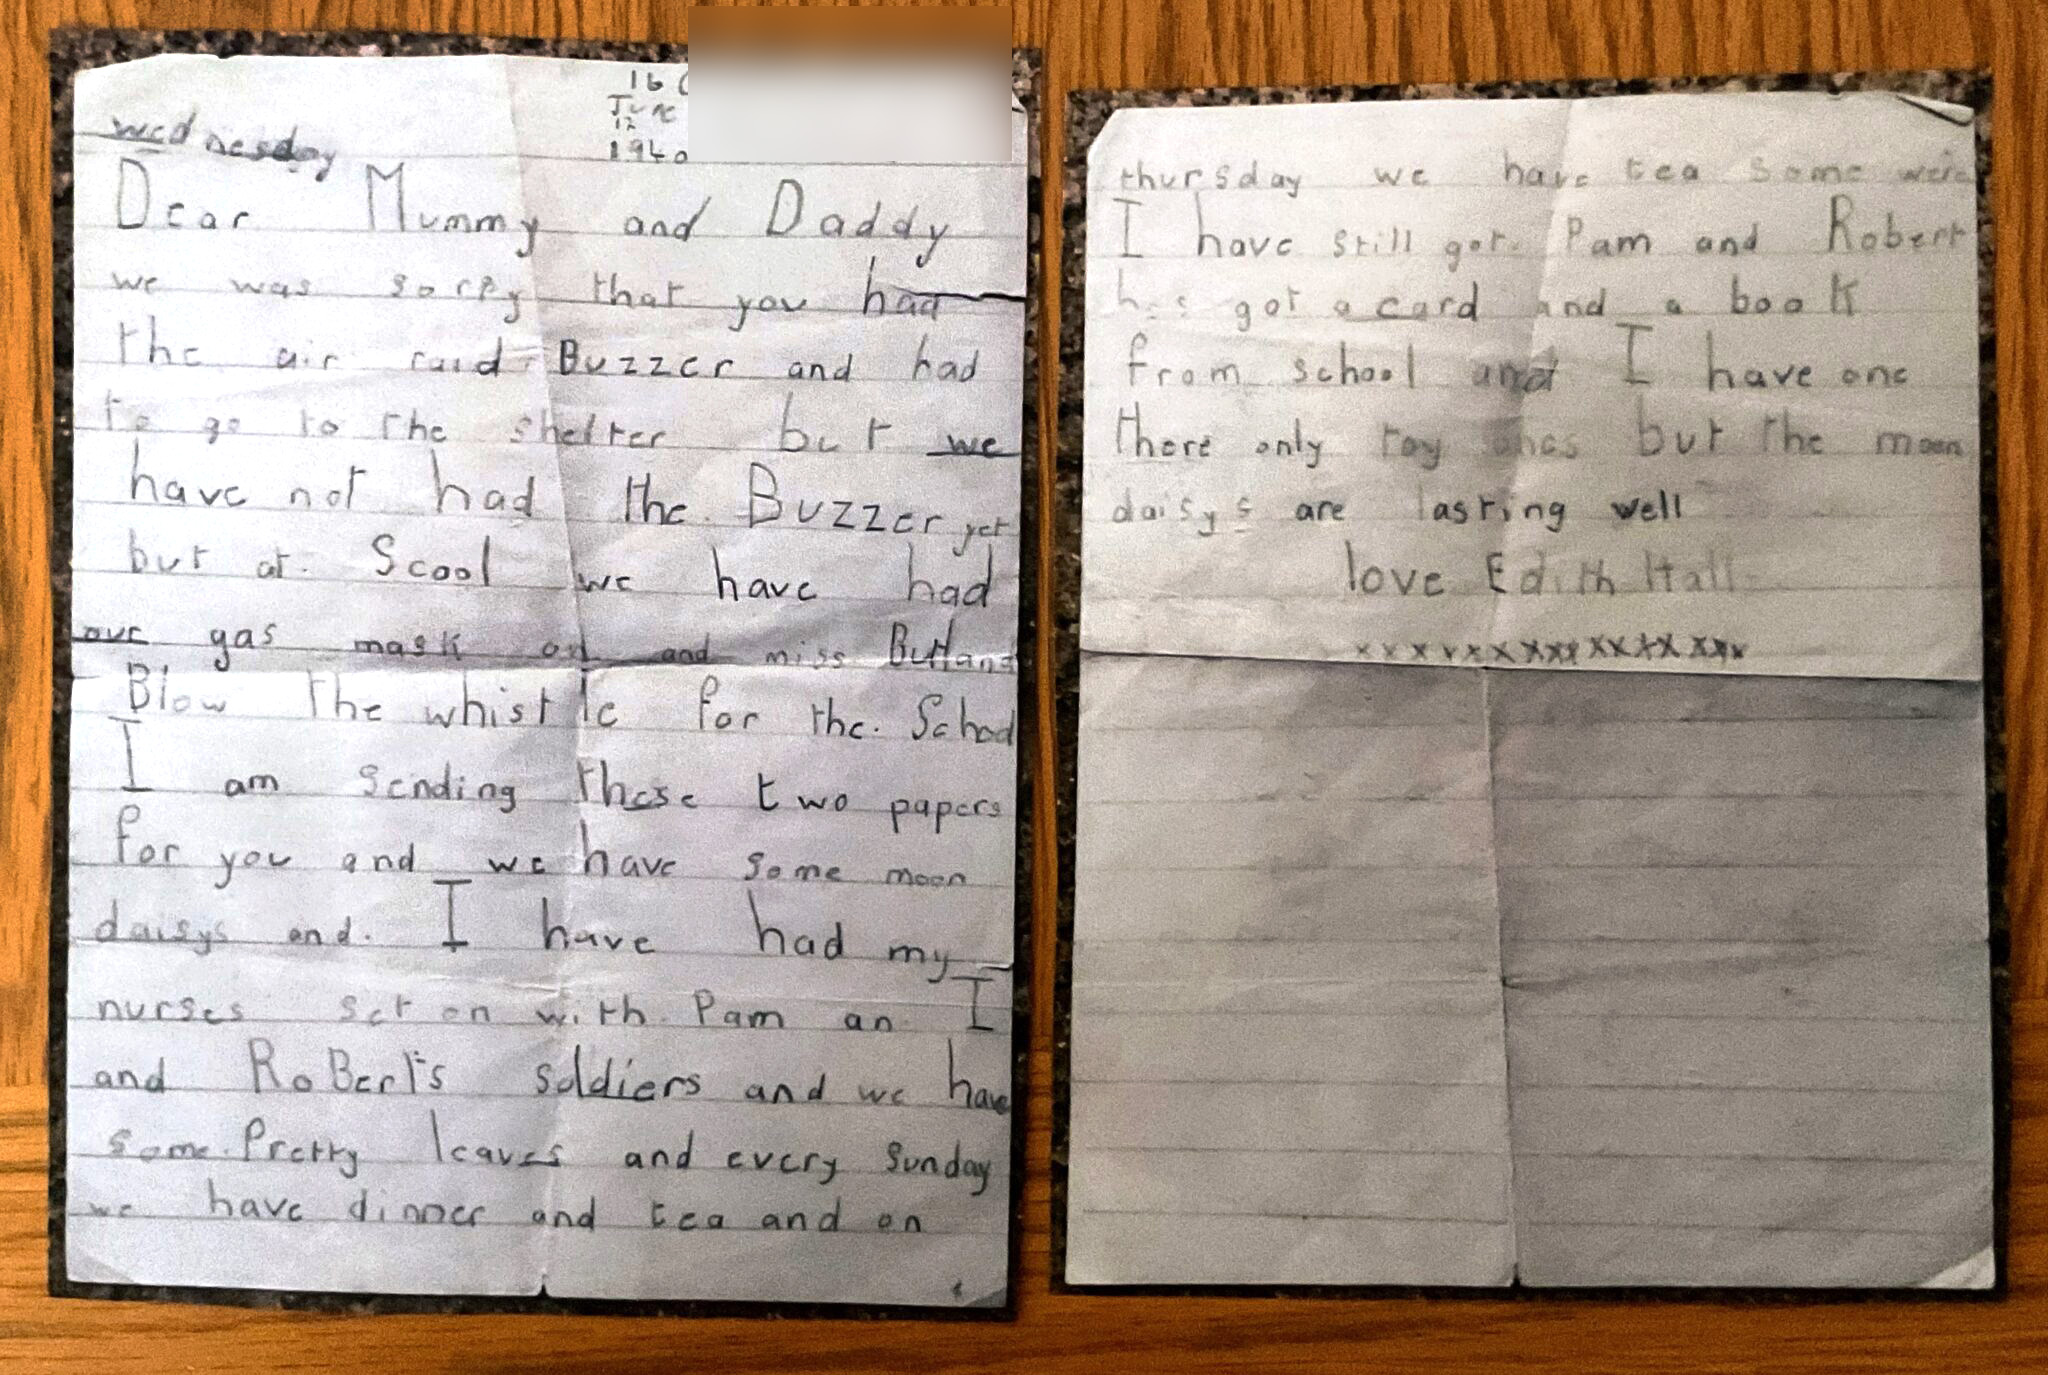 16
June
12
1940
wednesday
Dear Mummy and Daddy
we was sorry that you had
the air raid Buzzer and had
to go to the shelter but we
have not had the. Buzzer yet
but at. Scool we have had
our gas mask on and miss Butland
Blow the whistle for the. School
I am sending these two papers
for you and we have some moon
daisys and. I have had my
nurses set on with Pam an I
and RoBert's soldiers and we have
some Pretty leaves and every sunday
we have dinner and tea and on
thursday we have tea some were
I have still got. Pam and Robert
has got a card and a book
from school and I have one
there only toy ones but the moon
daisys are lasting well
love Edith Hall
xxxxxxxxxxxxxxxxx